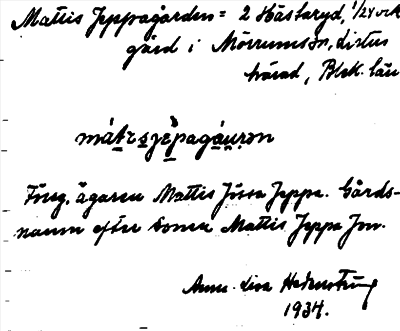 Mattis Jeppagården = 2 Hästaryd, 1/24 ock
gård i Mörrums sn, Listers
härad, Blek. län
mátɛsjèpagáuṇən
Föreg. ägaren Mattis Jöns Jeppa. Gårds-
namn efter sonen Mattis Jeppa Jon.
Anna-Lisa
1934.